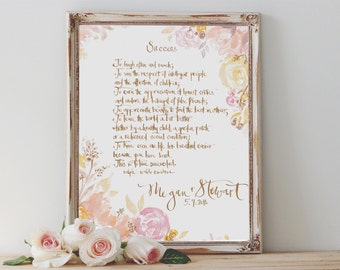 Success
To laugh often and much;
To win the respect of intelligent people
and the affection of children;
To earn the appreciation of honest critics
and endure the betrayal of false friends;
To appreciate beauty, to find the best in others;
To leave the world a bit better
whether by a healthy child, a garden patch,
or a redeemed social condition;
To know even one life has breathed easier
because you have lived.
This is to have succeeded.
Megan & Stewart